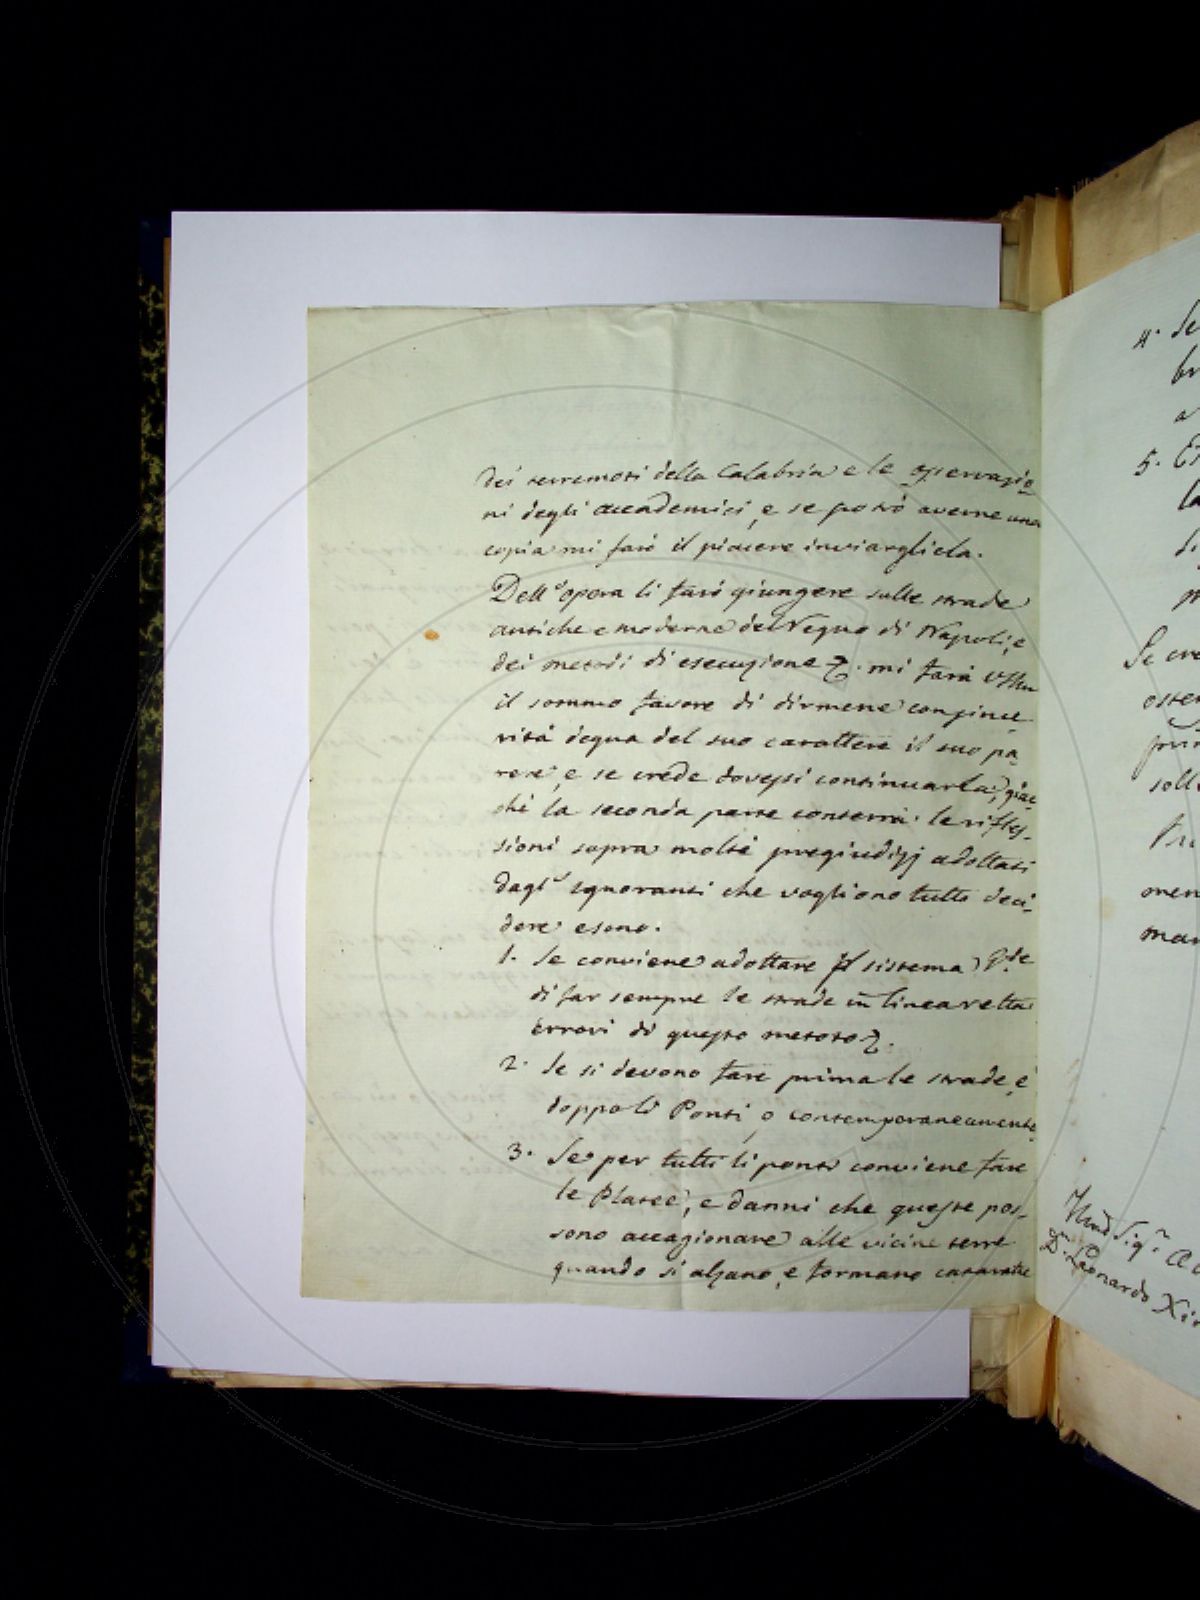 dei terremoti della Calabria e le osservazio
ni degli accademici, e se potrò averne una
copia mi farò il piacere inviargliela.
Dell'opera li farò giungere sulle strade
antiche e moderne del Regno di Napoli, e
dei metodi di esecuzione &. mi farà
il sommo favore di dirmene con since
rità degna del suo carattere il suo pa
rere, e se crede dovessi continuarla, giac
chè la seconda parte conterrà le rifles-
sioni sopra molti pregiudizj adottati
dagl' ignoranti che vogliono tutto deci-
dere e sono.
1. Se conviene adottare il sistema
di far sempre le strade in linea retta
errori di questo metodo &.
2. Se si devono fare prima le strade, e
doppo li Ponti, o contemporaneamente
3. Se per tutti li ponti conviene fare
le Platee, e danni che queste pos-
sono accagionare alle vicine terre
quando si alzano, e formano cataratte
4. Se
br
a
5.
la
Se cre
oster
soll
men
man
Sig.r
D. Leonardo Xi